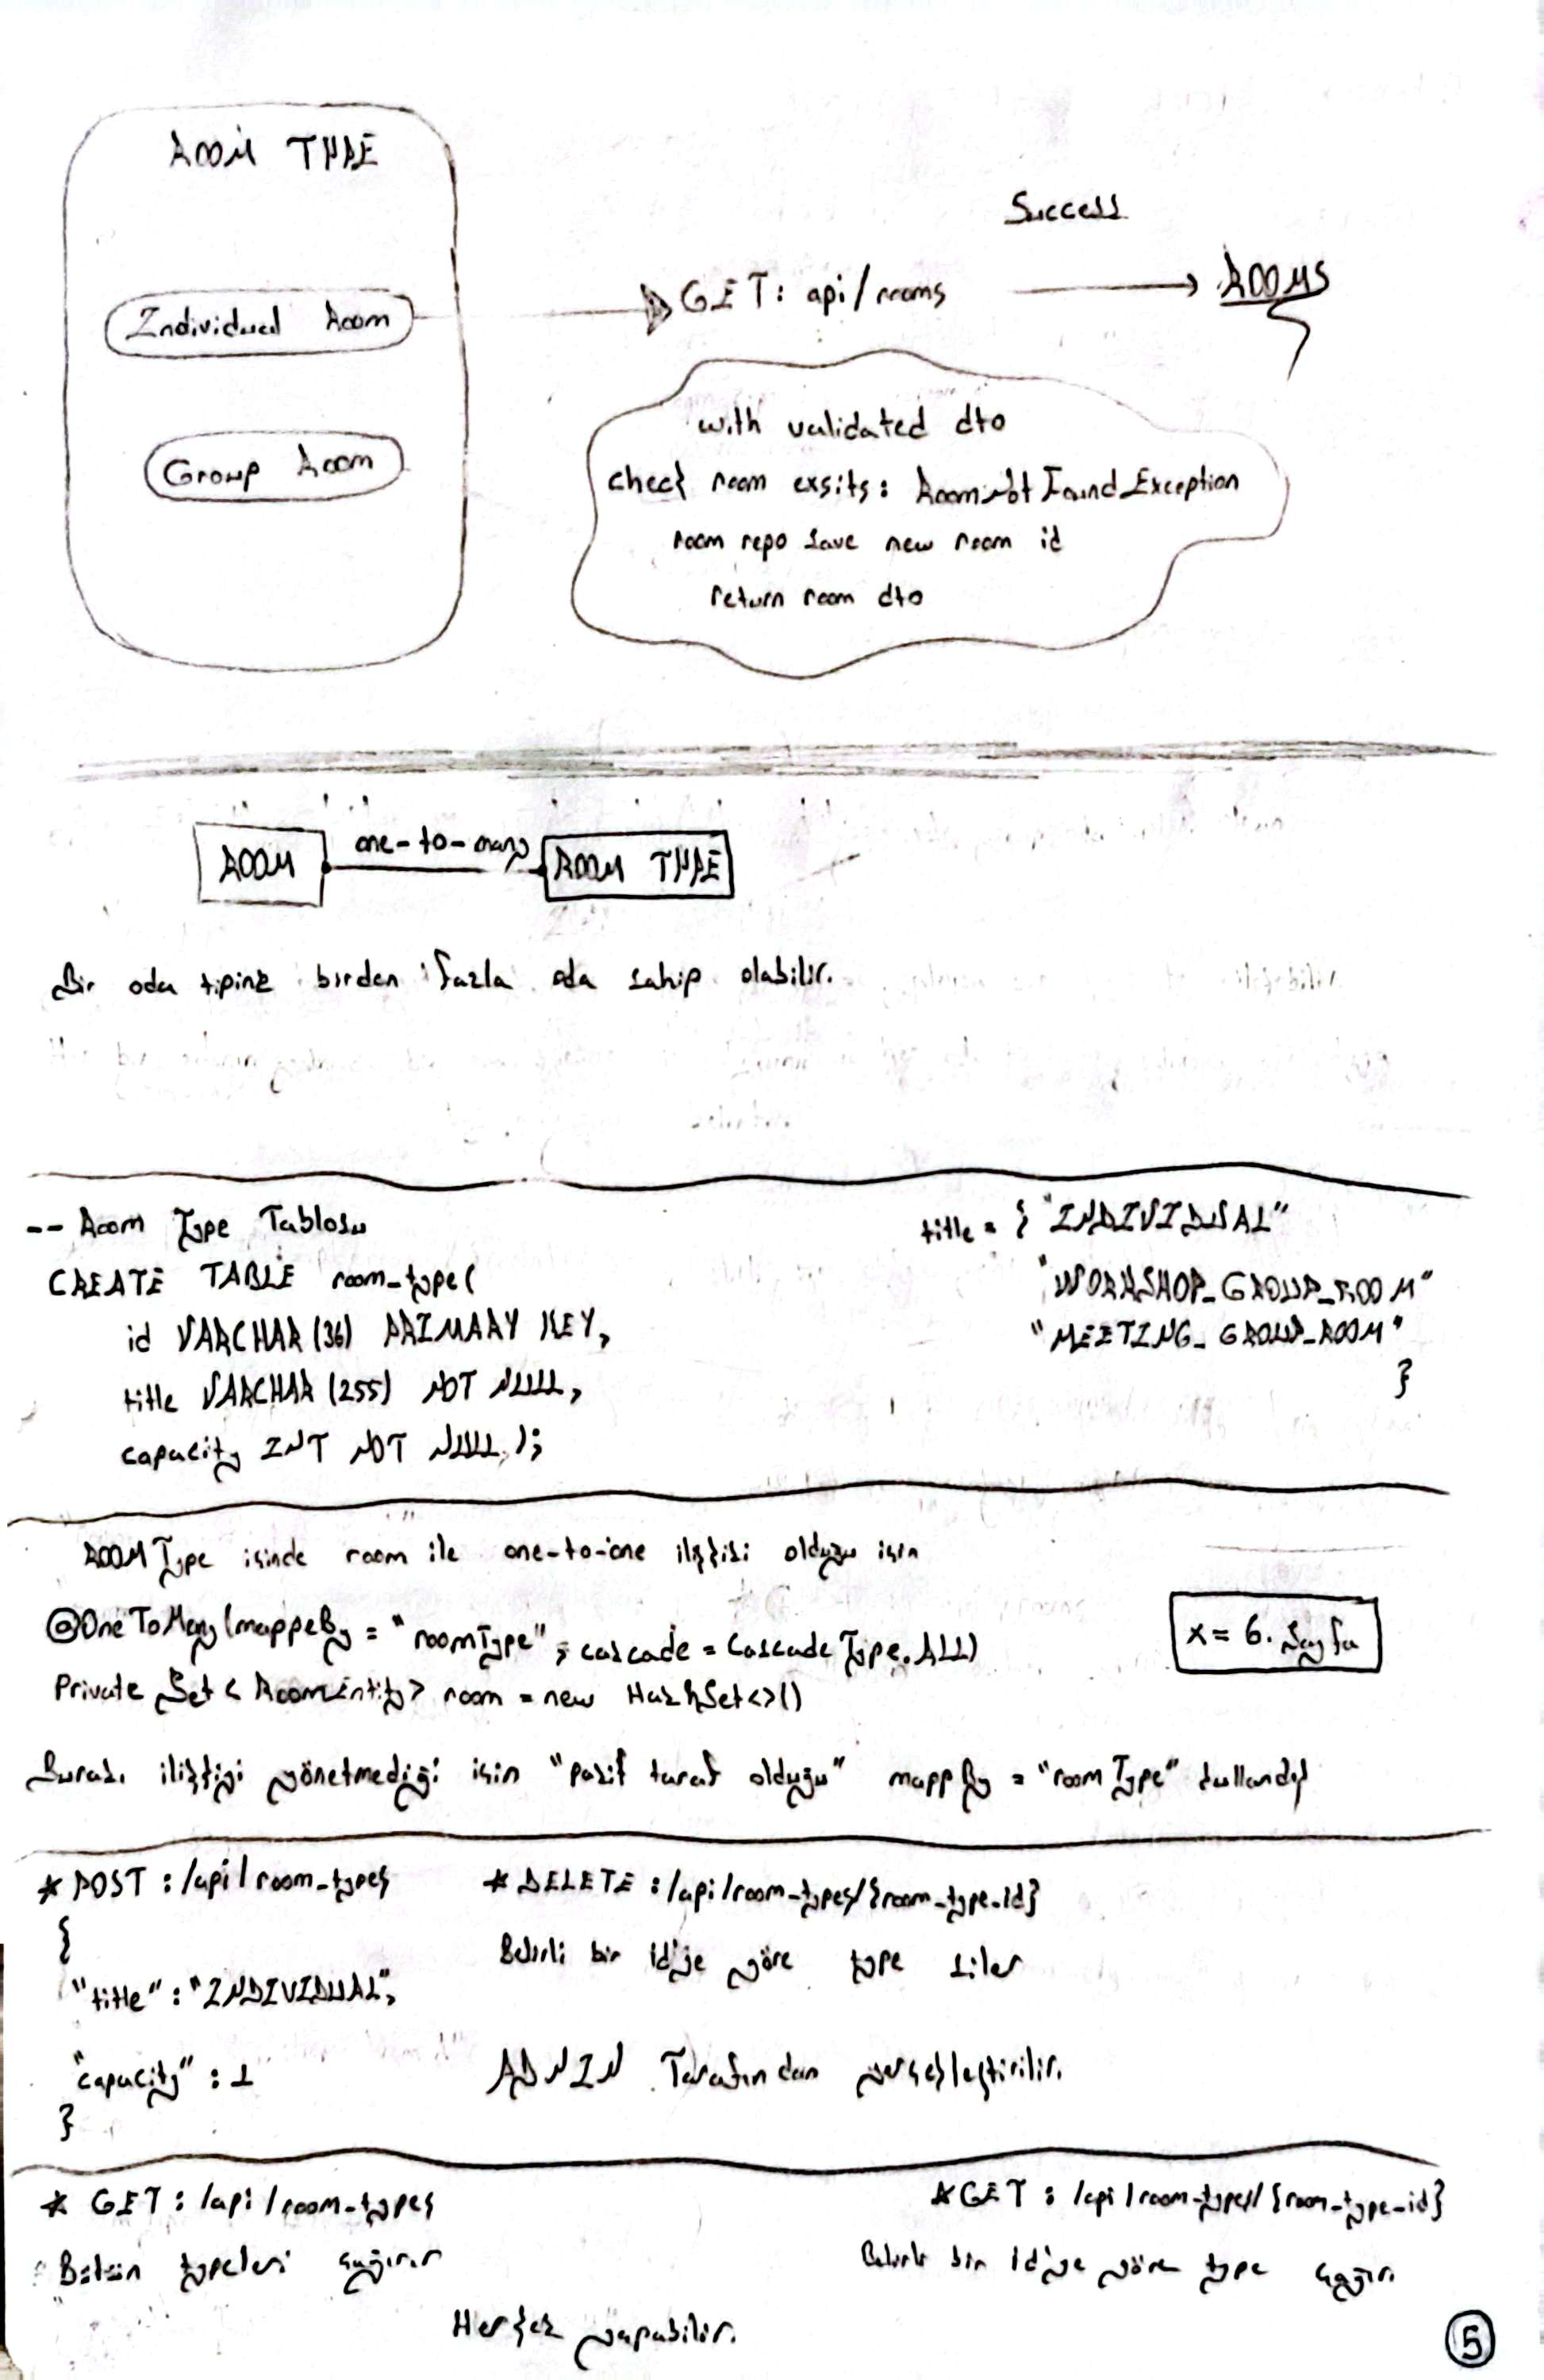 ROOM TYPE
Success
Individual Room
GET: api/rooms
ROOMS
Group Room
with validated dto
check room exsits: RoomNotFoundException
room repo save new room id
return room dto
ROOM
one-to-many
ROOM TYPE
Bir oda tipine birden fazla oda sahip olabilir.
-- Room Type Tablosu
CREATE TABLE room_type(
id VARCHAR (36) PRIMARY KEY,
title VARCHAR (255) NOT NULL,
capacity INT NOT NULL );
title = { "INDIVIDUAL"
"WORKSHOP_GROUP_ROOM"
"MEETING_GROUP_ROOM"
}
ROOM Type içinde room ile one-to-one ilişkisi olduğu için
@OneToMany(mappeBy = "roomType", cascade = CascadeType.ALL)
Private Set < RoomEntity> room = new HashSet<>()
x = 6. Sayfa
Burası ilişkiyi yönetmediği için "pasif taraf olduğu" mappBy = "roomType" kullandık
* POST : /api/room_types
{
"title" : "INDIVIDUAL",
"capacity" : 1
}
* DELETE : /api/room_types/{room_type_id}
Belirli bir id'ye göre type siler
ADMIN Tarafından gerçekleştirilir.
* GET : /api/room_types
Bütün typeları çağırır
* GET : /api/room_types/{room_type_id}
Belirli bir id'ye göre type çağırır.
Herkes yapabilir.
5